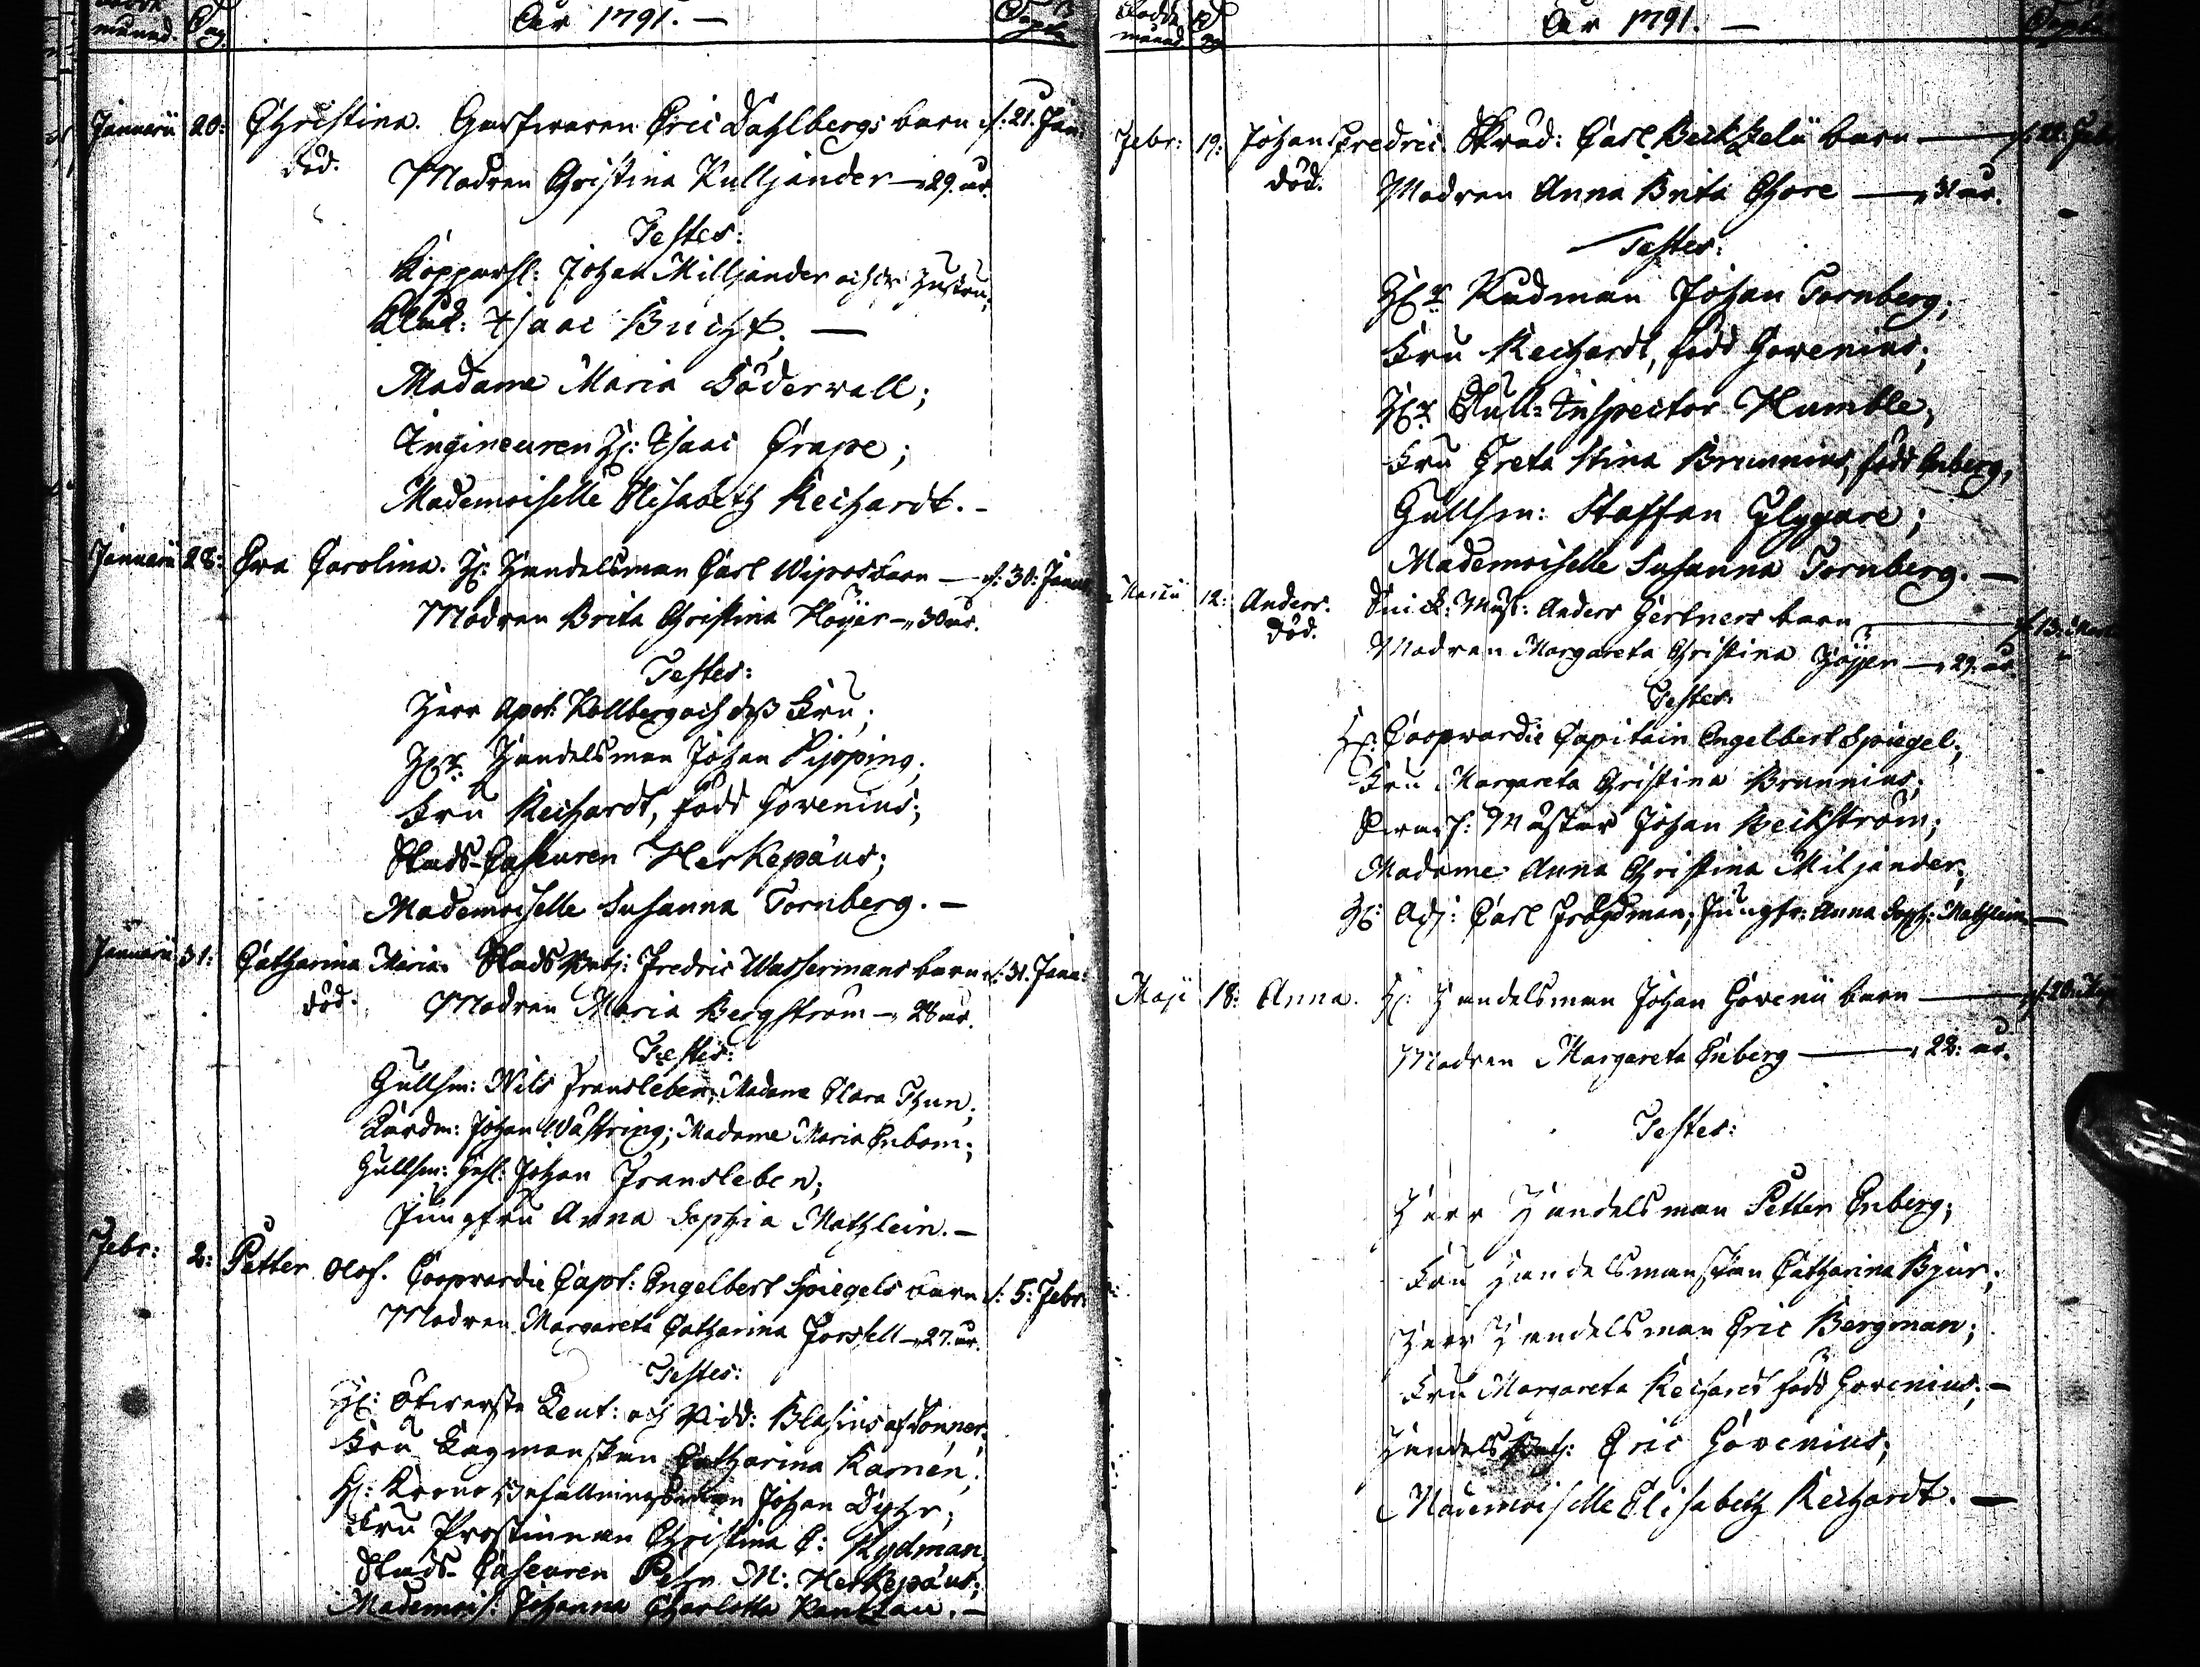 månad. Dag. År 1791. —
Januarii 20: Christina. Garfwaren Eric Dahlbergs barn d: 21. Jan:
död. Modren Christina Kulljander — 29. år.
Testes:
Kopparsl: Johan Milljander och dess hustru;
Isaac Bucht; —
Madame Maria Söderwall;
Ingineuren H: Isaac Grape;
Mademoiselle Elisabeth Reichardt. —
Januarii 28: Ewa Carolina. H: Handelsman Carl Wipos barn — d: 30: Janua
Modren Brita Christina Höijer — 30 år.
Testes:
Herr Apot: Kollberg och dess Fru;
H:r Handelsman Johan Piping;
Fru Reichardt, född Govenius;
Stads-Casseuren Herkepæus;
Mademoiselle Susanna Tornberg. —
Januarii 31: Catharina Maria. Stads Fredric Wassermans barn d: 31. Janu:
död. Modren Maria Bergström — 28 år.
Testes:
Gullsm: Nils Fransleben; Madame Clara Thun;
Johan Wästring; Madame Maria Enbom;
Gullsm: Ges: Johan Fransleben;
Jungfru Anna Sophia Mathlein. —
Febr: 2: Petter Olof. Coopvardie Capt: Engelbert Spiegels barn d: 5: Febr:
Modren Margareta Catharina Forssell — 27. år.
Testes:
H: Öfwerste Leut: och Ridd: Blasius af Donner;
Fru Lagmanskan Catharina Karnén;
H: Krono Befallningsman Johan Dyhr;
Fru Prostinnan Christina C: Rydman,
Stads-Casseuren Pehr M: Herkepæus;
Mademois: Johanna Charlotta Rantzau. —
Född månad År 1791. —
Febr: 19: Johan Fredric. Skräd: Carl Beckzelii barn — d: 22. Febr
död. Modren Anna Brita Chore — 31 år.
Testes:
H:r Rådman Johan Tornberg;
Fru Reichardt, född Govenius;
H:r Tull-Inspector Humble,
Fru Greta Stina Brunnius, född Enberg,
Gullsm: Staffan Glyggare;
Mademoiselle Susanna Tornberg. —
Martii 12: Anders. Snick: Mäst: Anders Gertners barn — d: 13: Mart
död. Modren Margareta Christina Höijer — 29. år.
Testes:
H: Coopvardie Capitain Engelbert Spiegel;
Fru Margareta Christina Brunnius;
Mäster Johan Beckström;
Madame Anna Christina Miljander;
H: Adj: Carl Jungfr: Anna Soph: Mathlein —
Maji 18: Anna. H: Handelsman Johan Govenii barn — d: 20. Maj
Modren Margareta Enberg — 22: år.
Testes:
Herr Handelsman Petter Enberg;
Fru Handelsmanskan Catharina Bjur;
Herr Handelsman Eric Bergman;
Fru Margareta Reichardt född Govenius; —
Handels Betj: Eric Govenius;
Mademoiselle Elisabeth Reichardt. —